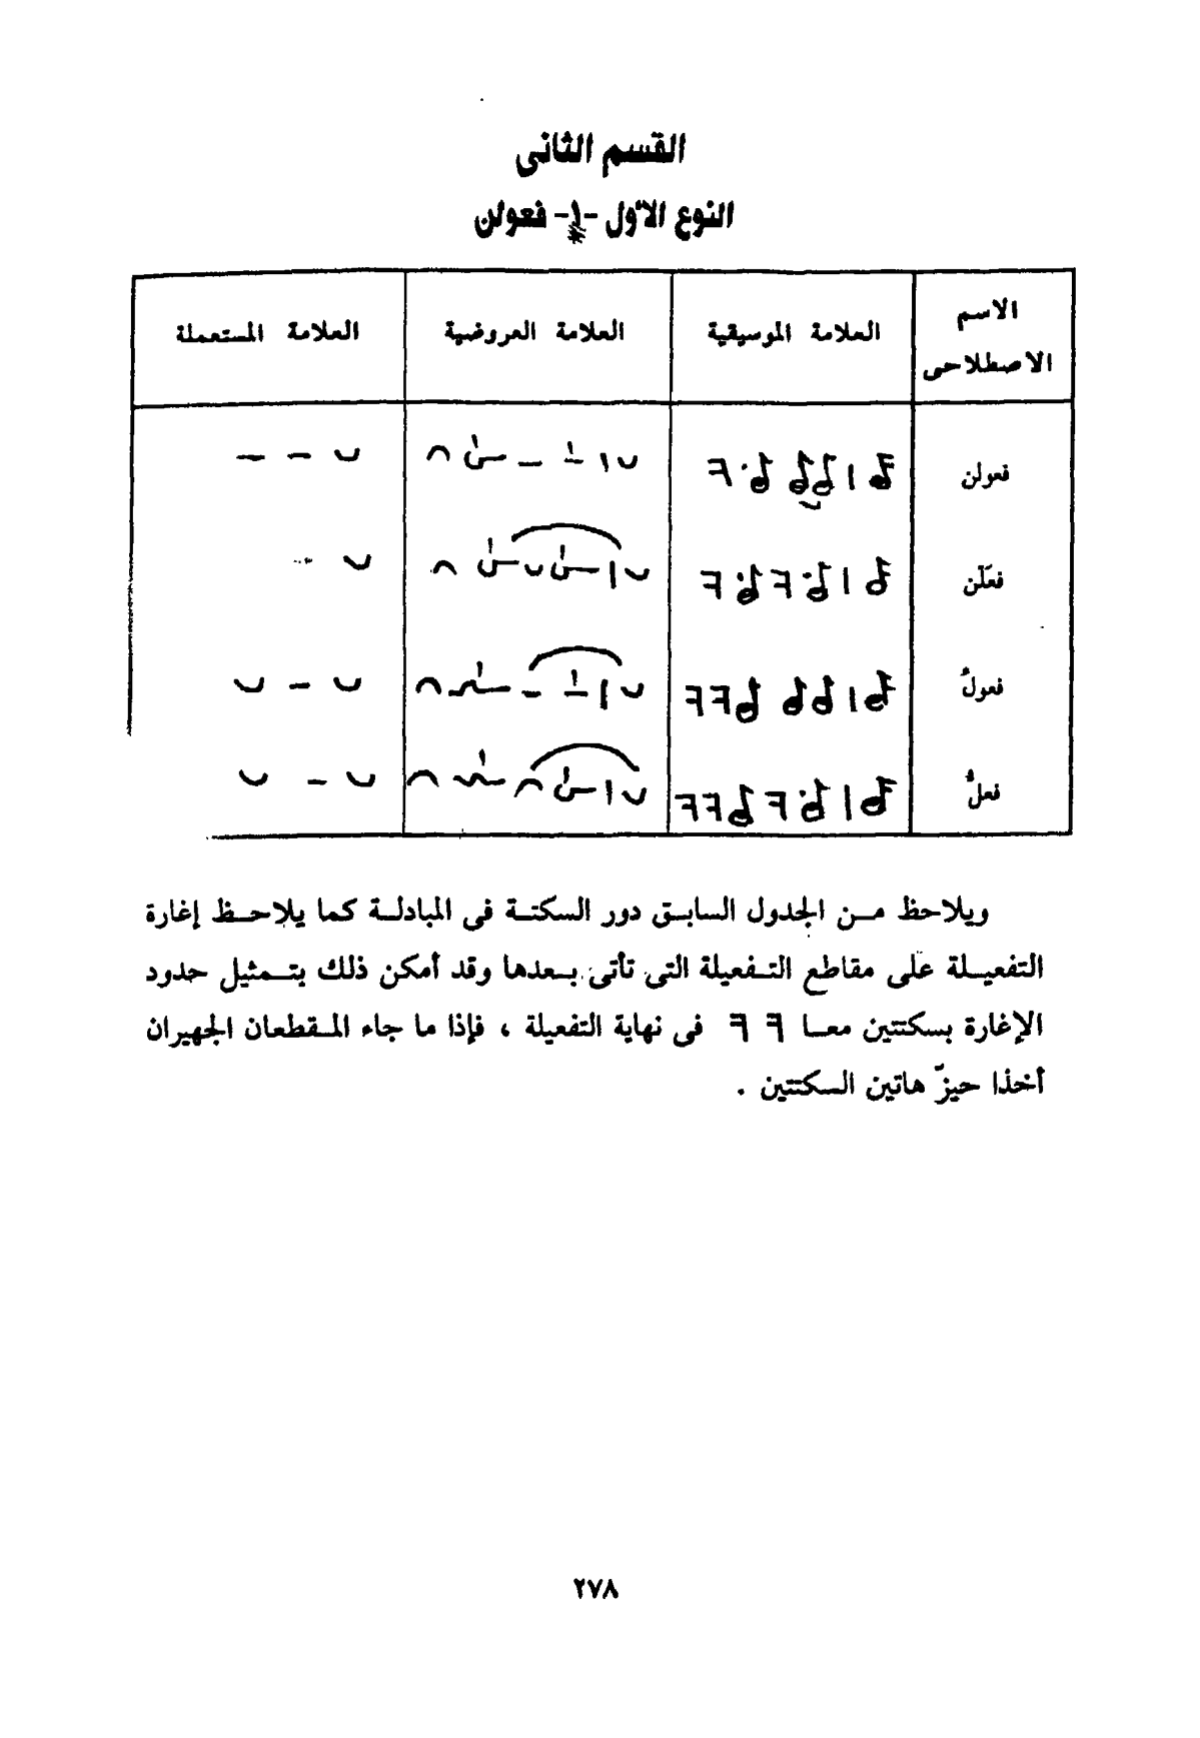 القسم الثانى
النوع الأول -١- فعولن
الاسم الاصطلاحى العلامة الموسيقية العلامة العروضية العلامة المستعملة
فعولن
فعَلن
فعولُ
فعلُ
ويلاحظ من الجدول السابق دور السكتة فى المبادلة كما يلاحظ إغارة
التفعيلة على مقاطع التفعيلة التى تأتى بعدها وقد أمكن ذلك بتمثيل حدود
الإغارة بسكتتين معا فى نهاية التفعيلة ، فإذا ما جاء المقطعان الجهيران
أخذا حيزّ هاتين السكتتين .
٢٧٨